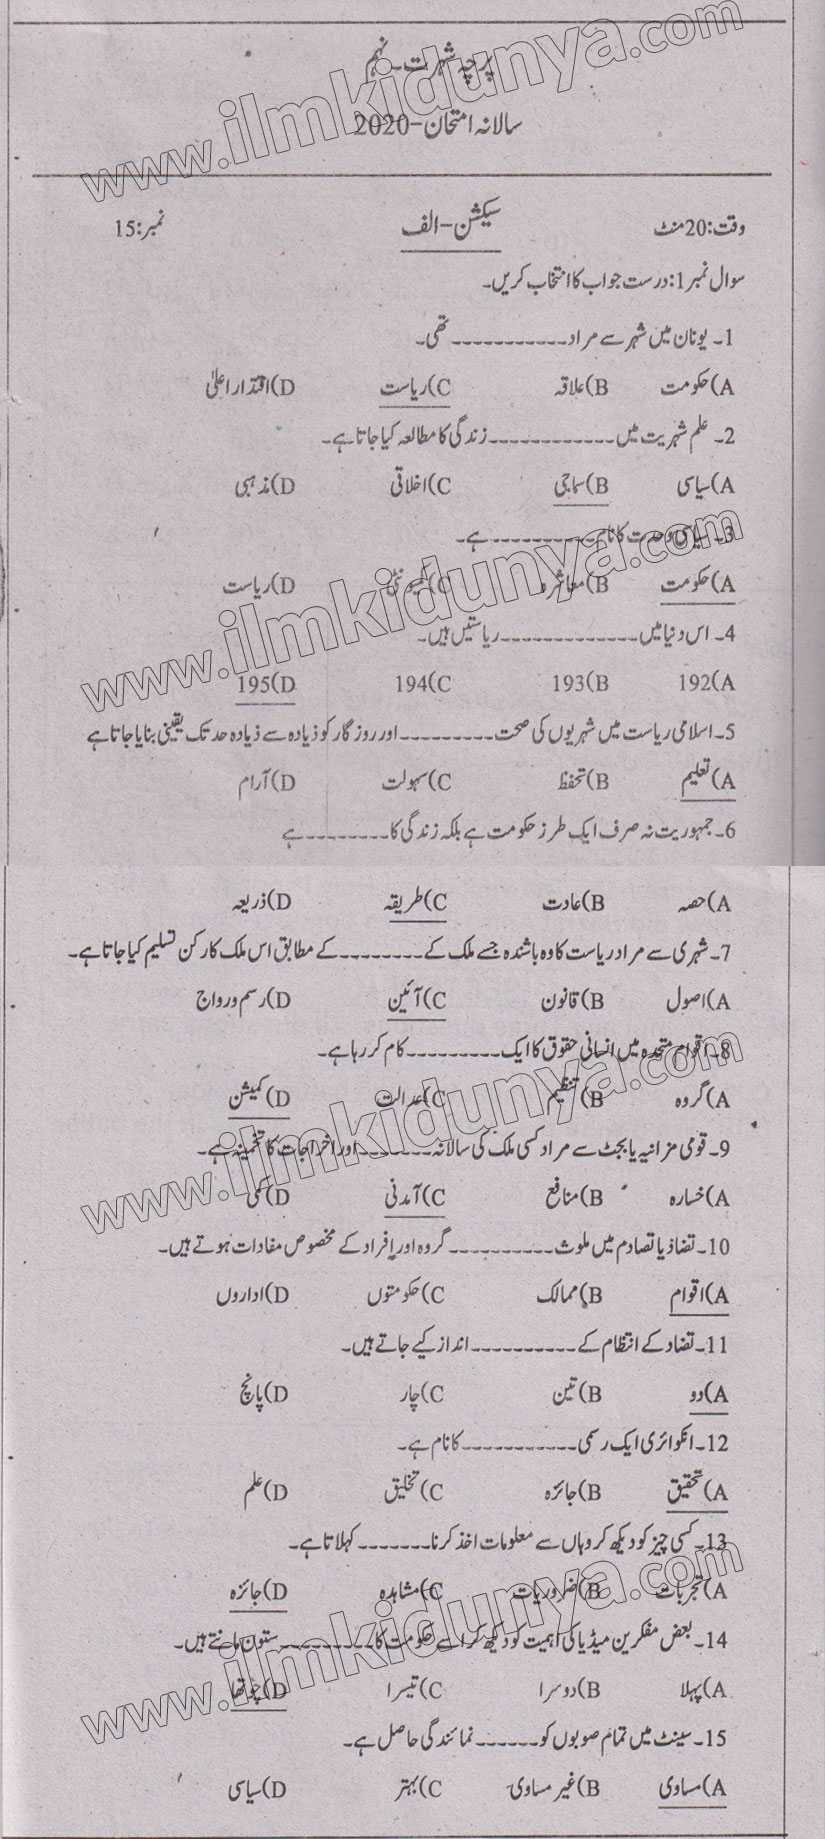 پرچہ شہرت۔نہم
سالانہ امتحان-2020
وقت:20منٹ سیکشن-الف نمبر:15
سوال نمبر1:درست جواب کا انتخاب کریں۔
1۔ یونان میں شہر سے مراد۔۔۔۔۔۔۔۔۔۔۔تھی۔
A)حکومت B)علاقہ C)ریاست D)اقتدار اعلیٰ
2۔ علم شہریت میں۔۔۔۔۔۔۔۔۔۔۔۔زندگی کا مطالعہ کیا جاتا ہے۔
A)سیاسی B)سماجی C)اخلاقی D)مذہبی
3۔ سیاسی وحدت کا نام۔۔۔۔۔۔۔۔۔۔ہے۔
A)حکومت B)معاشرہ C)کمیونٹی D)ریاست
4۔ اس دنیا میں۔۔۔۔۔۔۔۔۔۔۔۔۔ریاستیں ہیں۔
A)192 B)193 C)194 D)195
5۔اسلامی ریاست میں شہریوں کی صحت۔۔۔۔۔۔۔۔۔اور روزگار کو ذیادہ سے ذیادہ حد تک یقینی بنایا جاتا ہے
A)تعلیم B)تحفظ C)سہولت D)آرام
6۔جمہوریت نہ صرف ایک طرز حکومت ہے بلکہ زندگی کا۔۔۔۔۔۔۔۔ہے
A)حصہ B)عادت C)طریقہ D)ذریعہ
7۔شہری سے مراد ریاست کا وہ باشندہ جسے ملک کے۔۔۔۔۔۔۔۔کے مطابق اس ملک کا رکن تسلیم کیا جاتا ہے۔
A)اصول B)قانون C)آئین D)رسم و رواج
8۔اقوام متحدہ میں انسانی حقوق کا ایک۔۔۔۔۔۔۔۔۔کام کر رہا ہے۔
A)گروہ B)تنظیم C)عدالت D)کمیشن
9۔قومی مزانیہ یا بجٹ سے مراد کسی ملک کی سالانہ۔۔۔۔۔۔۔اور اخراجات کا تخمینہ ہے۔
A)خسارہ B)منافع C)آمدنی D)کمی
10۔تضاد یا تصادم میں ملوث۔۔۔۔۔۔۔۔۔۔گروہ اور افراد کے مخصوص مفادات ہوتے ہیں۔
A)اقوام B)ممالک C)حکومتوں D)اداروں
11۔تضاد کے انتظام کے۔۔۔۔۔۔۔۔۔۔انداز کیے جاتے ہیں۔
A)دو B)تین C)چار D)پانچ
12۔انکوائری ایک رسمی۔۔۔۔۔۔۔۔۔۔۔کا نام ہے۔
A)تحقیق B)جائزہ C)تخلیق D)علم
13۔کسی چیز کو دیکھ کر وہاں سے معلومات اخذ کرنا۔۔۔۔۔۔۔کہلاتا ہے۔
A)تجربات B)ضروریات C)مشاہدہ D)جائزہ
14۔بعض مفکرین میڈیا کی اہمیت کو دیکھ کر اسے حکومت کا۔۔۔۔۔۔۔۔۔ستون مانتے ہیں۔
A)پہلا B)دوسرا C)تیسرا D)چوتھا
15۔سینٹ میں تمام صوبوں کو۔۔۔۔۔۔نمائندگی حاصل ہے۔
A)مساوی B)غیر مساوی C)بہتر D)سیاسی
www.ilmkidunya.com
www.ilmkidunya.com
www.ilmkidunya.com
www.ilmkidunya.com